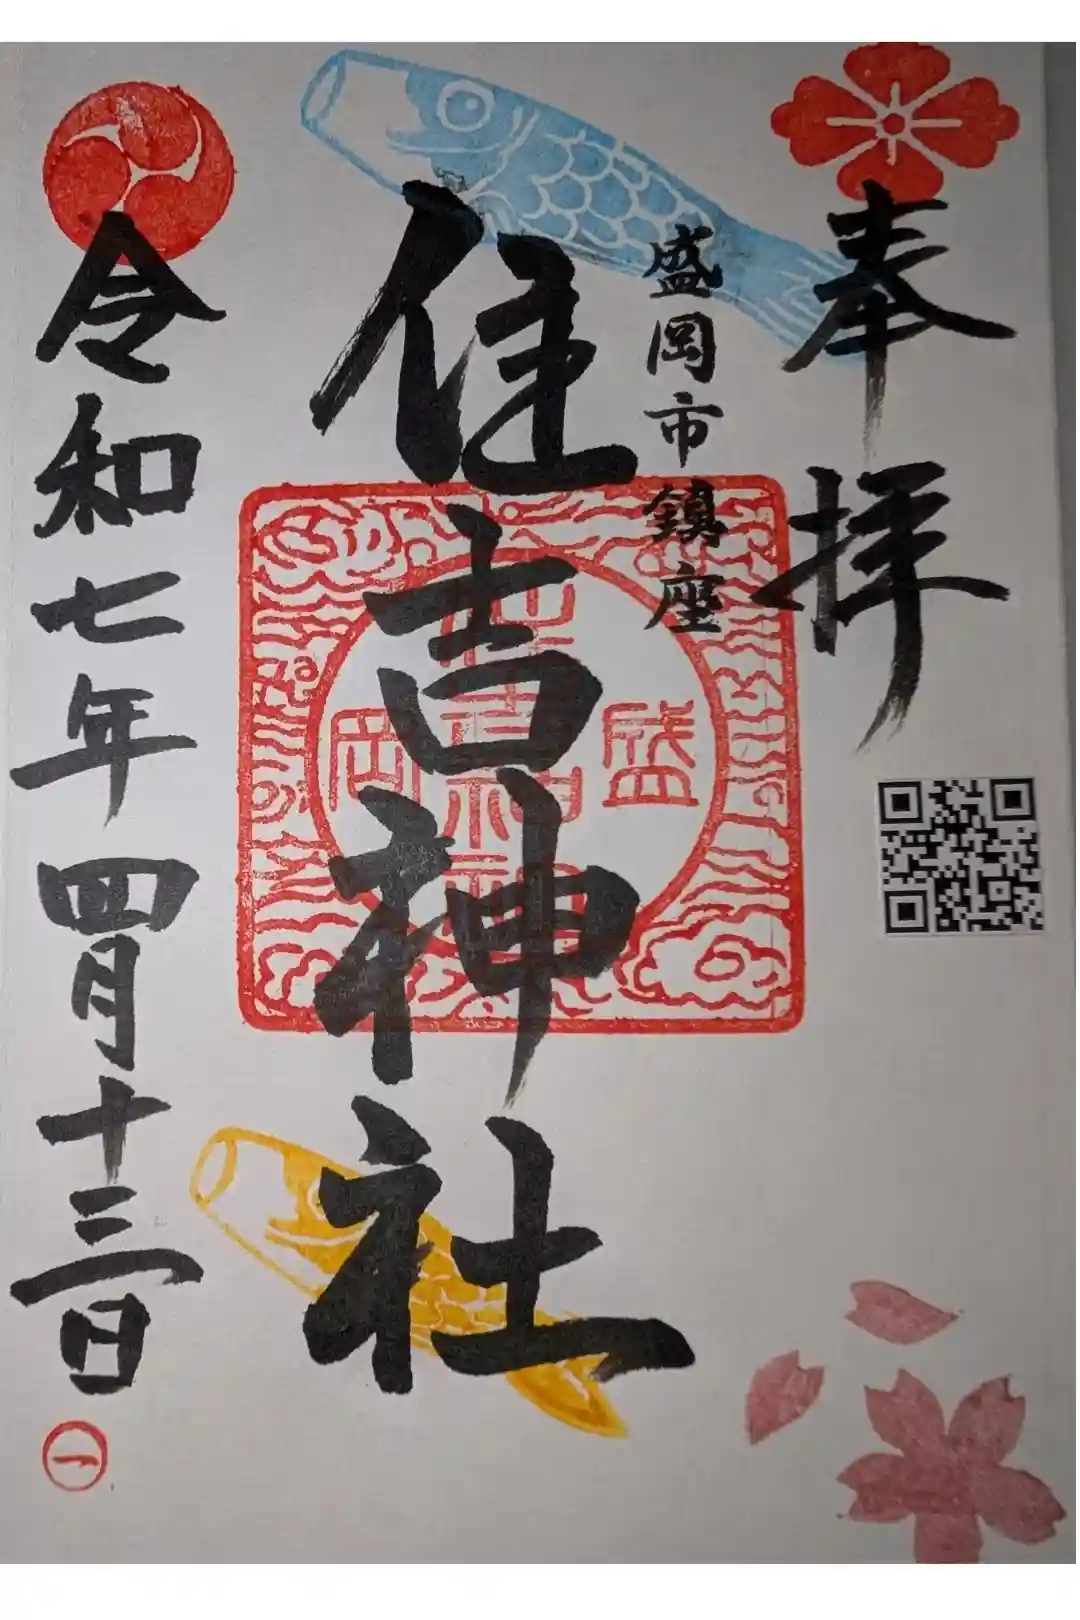 奉拝
盛岡市鎮座
住吉神社
盛岡
住吉神社
令和七年四月十三日
一